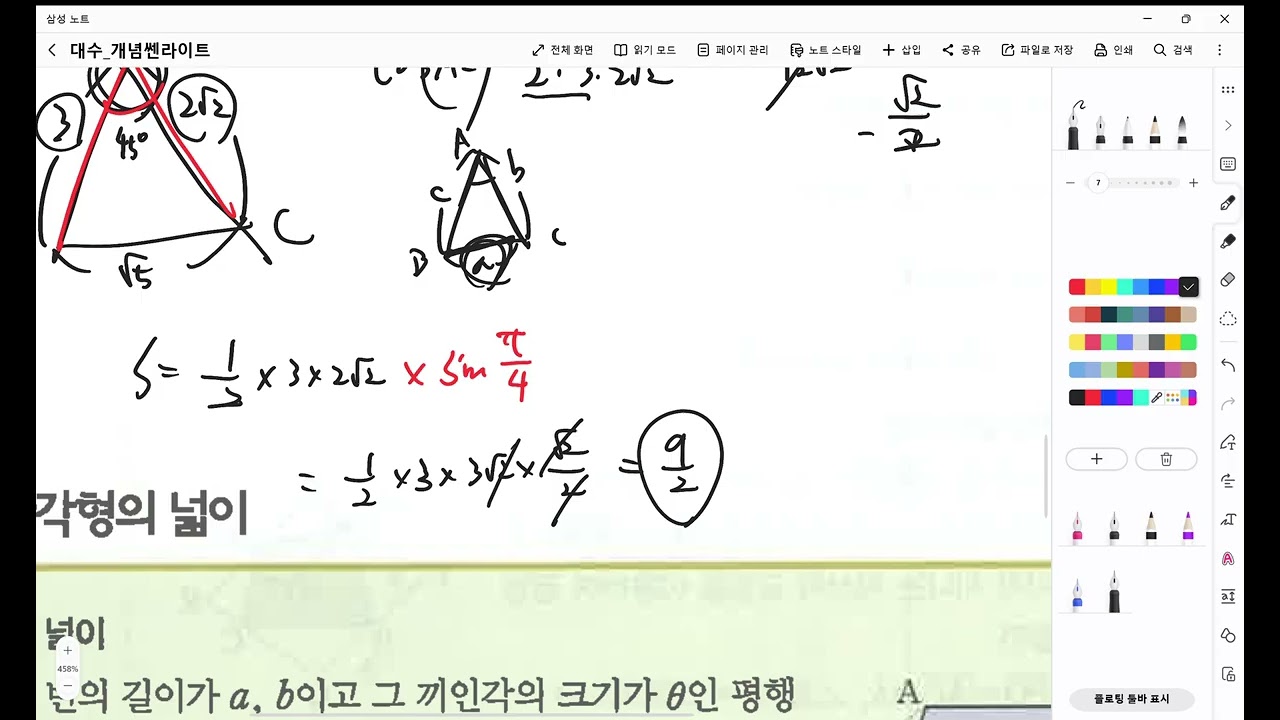 삼성 노트
대수_개념쎈라이트
전체 화면 읽기 모드 페이지 관리 노트 스타일 삽입 공유 파일로 저장 인쇄 검색
2 · 3 · 2√2
√2
3 2√2
- 2
45°
A
c b
C
B a c
√5
S = 1/2 × 3 × 2√2 × sin π/4
= 1/2 × 3 × 3√2 × √2/2 = 9/2
각형의 넓이
넓이
458%
변의 길이가 a, b이고 그 끼인각의 크기가 θ인 평행
A
7
플로팅 툴바 표시